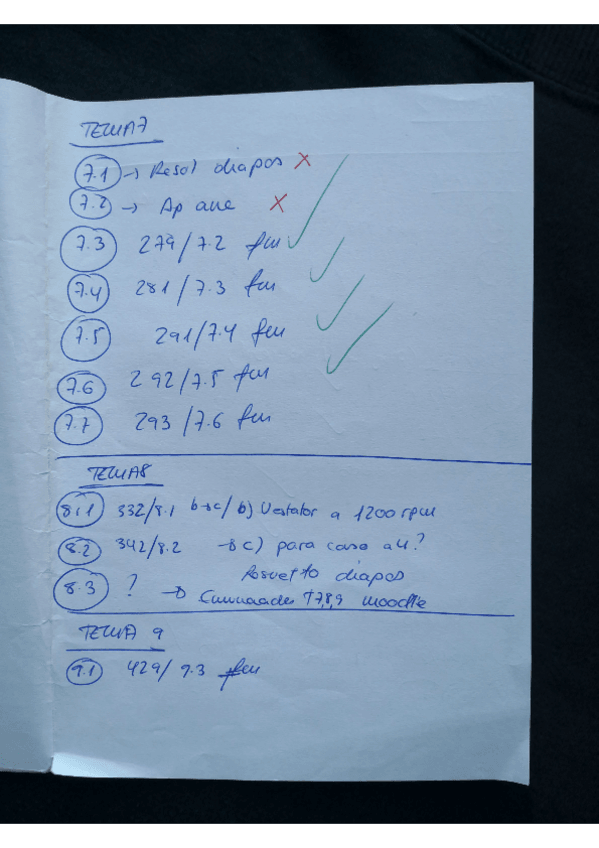 TEMA 7
7.1 → Resol diapos ×
7.2 → Ap ane ×
7.3 279/7.2 fm ✓
7.4 281/7.3 fm ✓
7.5 291/7.4 fm ✓
7.6 292/7.5 fm ✓
7.7 293/7.6 fm
TEMA 8
8.1 332/8.1 b→c/ b) Vestator a 1200 rpm
8.2 342/8.2 → c) para caso a4?
8.3 ? → Resuelto diapos
T7,8,9 moodle
TEMA 9
9.1 429/9.3 fm